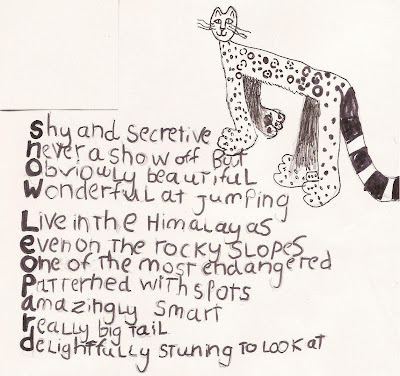 Shy and secretive
never a show off But
Obviowly beautiful
Wonderful at jumping
Live in the Himalayas
even on the rocky slopes
One of the most endangered
Patterned with spots
amazingly smart
really big tail
delightfully stuning to look at